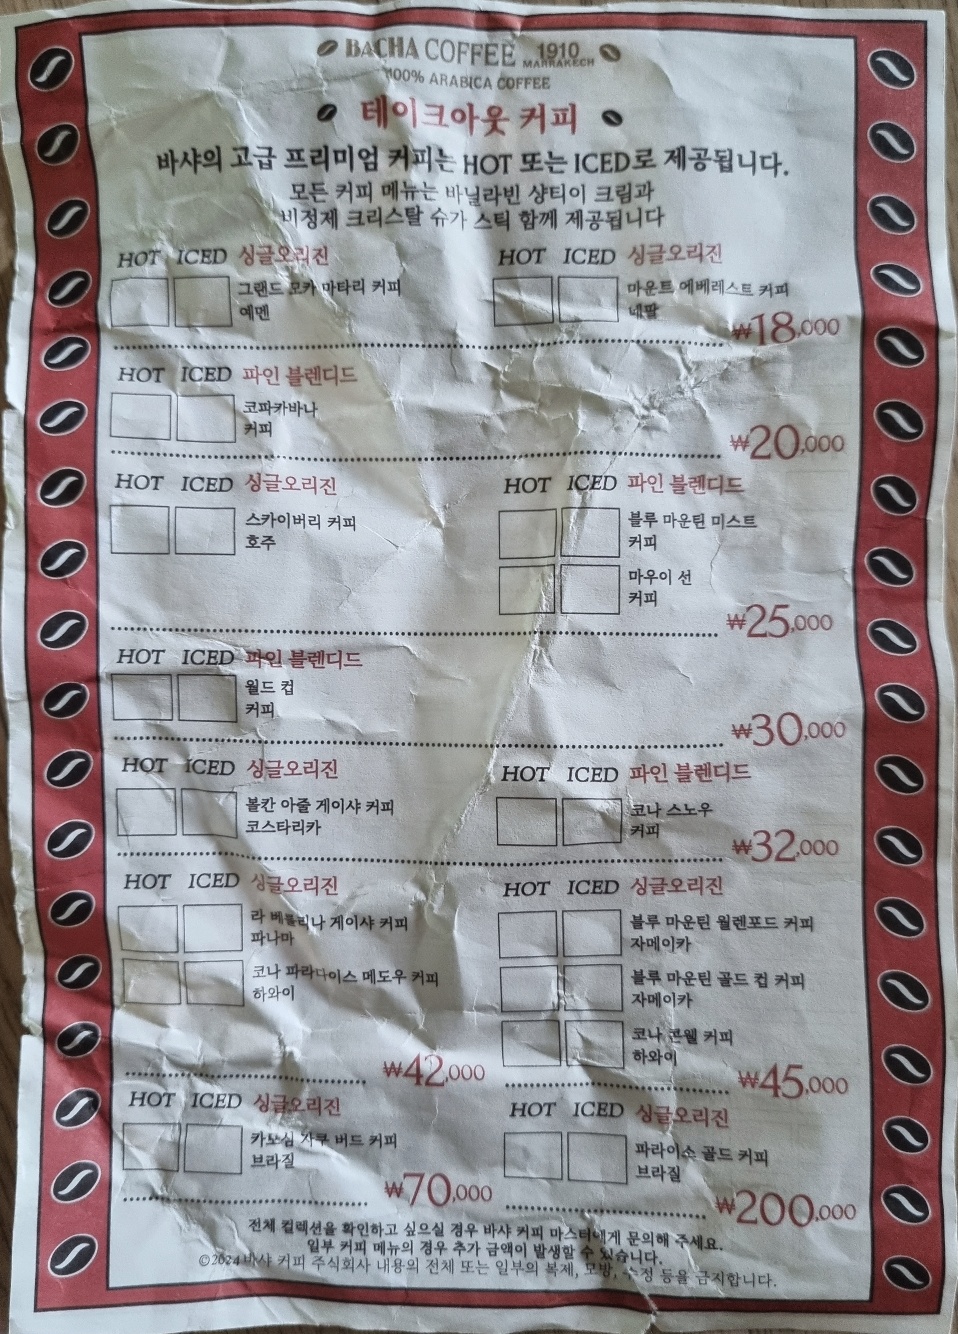 BACHA COFFEE 1910 MARRAKECH
100% ARABICA COFFEE
테이크아웃 커피
바샤의 고급 프리미엄 커피는 HOT 또는 ICED로 제공됩니다.
모든 커피 메뉴는 바닐라빈 샹티이 크림과
비정제 크리스탈 슈가 스틱 함께 제공됩니다
HOT ICED 싱글오리진
그랜드 모카 마타리 커피
예멘
HOT ICED 싱글오리진
마운트 에베레스트 커피
네팔
₩18,000
HOT ICED 파인 블렌디드
코파카바나
커피
₩20,000
HOT ICED 싱글오리진
스카이버리 커피
호주
HOT ICED 파인 블렌디드
블루 마운틴 미스트
커피
마우이 선
커피
₩25,000
HOT ICED 파인 블렌디드
월드 컵
커피
₩30,000
HOT ICED 싱글오리진
볼칸 아줄 게이샤 커피
코스타리카
HOT ICED 파인 블렌디드
코나 스노우
커피
₩32,000
HOT ICED 싱글오리진
라 베를리나 게이샤 커피
파나마
코나 파라다이스 메도우 커피
하와이
₩42,000
HOT ICED 싱글오리진
블루 마운틴 월렌포드 커피
자메이카
블루 마운틴 골드 컵 커피
자메이카
코나 콘웰 커피
하와이
₩45,000
HOT ICED 싱글오리진
카모심 자쿠 버드 커피
브라질
₩70,000
HOT ICED 싱글오리진
파라이소 골드 커피
브라질
₩200,000
전체 컬렉션을 확인하고 싶으실 경우 바샤 커피 마스터에게 문의해 주세요.
일부 커피 메뉴의 경우 추가 금액이 발생할 수 있습니다.
©2024 바샤 커피 주식회사 내용의 전체 또는 일부의 복제, 모방, 수정 등을 금지합니다.